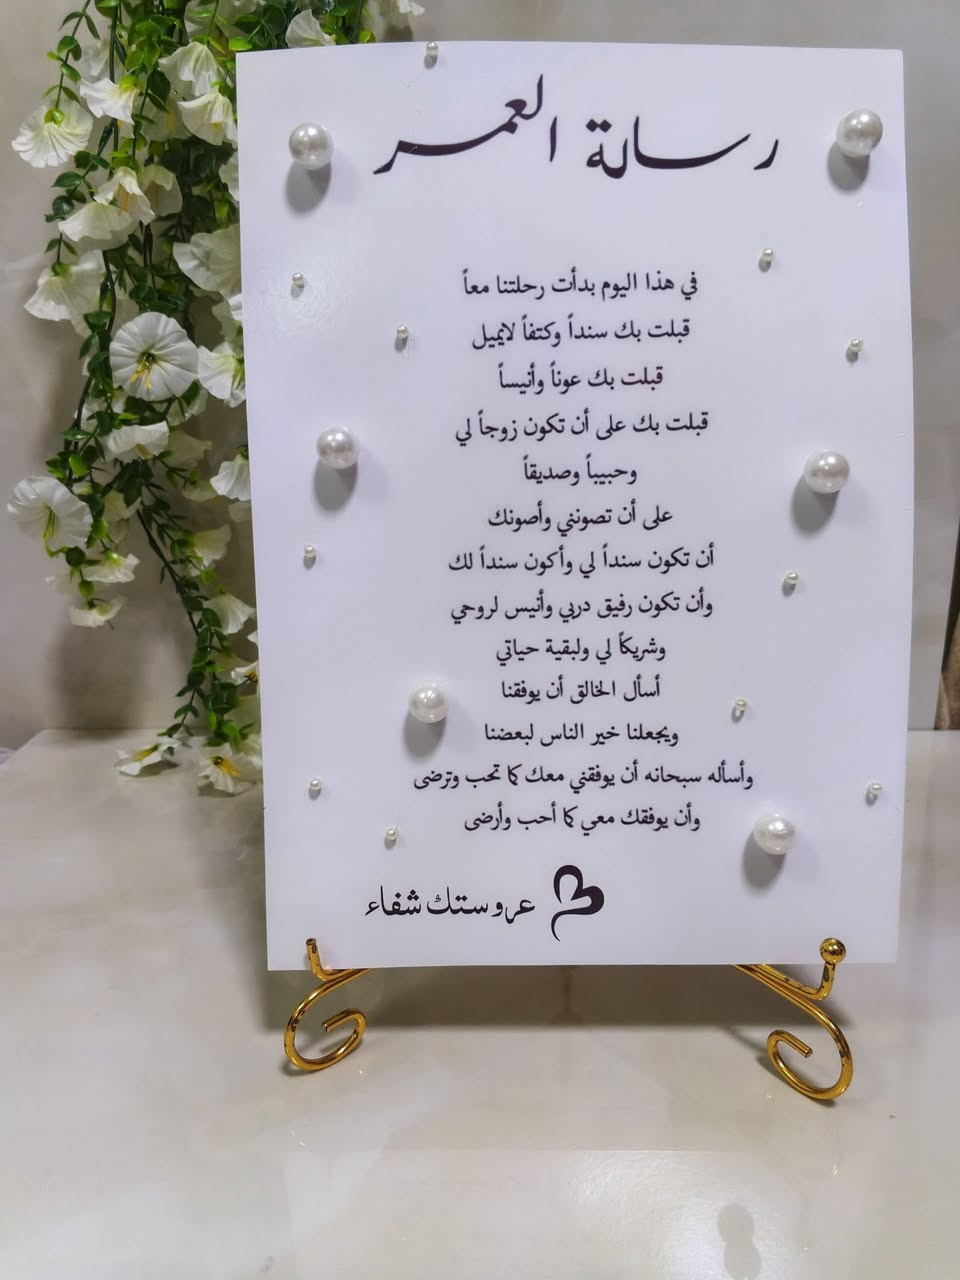 رسالة العمر
في هذا اليوم بدأت رحلتنا معاً
قبلت بك سنداً وكتفاً لايميل
قبلت بك عوناً وأنيساً
قبلت بك على أن تكون زوجاً لي
وحبيباً وصديقاً
على أن تصونني وأصونك
أن تكون سنداً لي وأكون سنداً لك
وأن تكون رفيق دربي وأنيس لروحي
وشريكاً لي ولبقية حياتي
أسأل الخالق أن يوفقنا
ويجعلنا خير الناس لبعضنا
وأسأله سبحانه أن يوفقني معك كما تحب وترضى
وأن يوفقك معي كما أحب وأرضى
عروستك شفاء